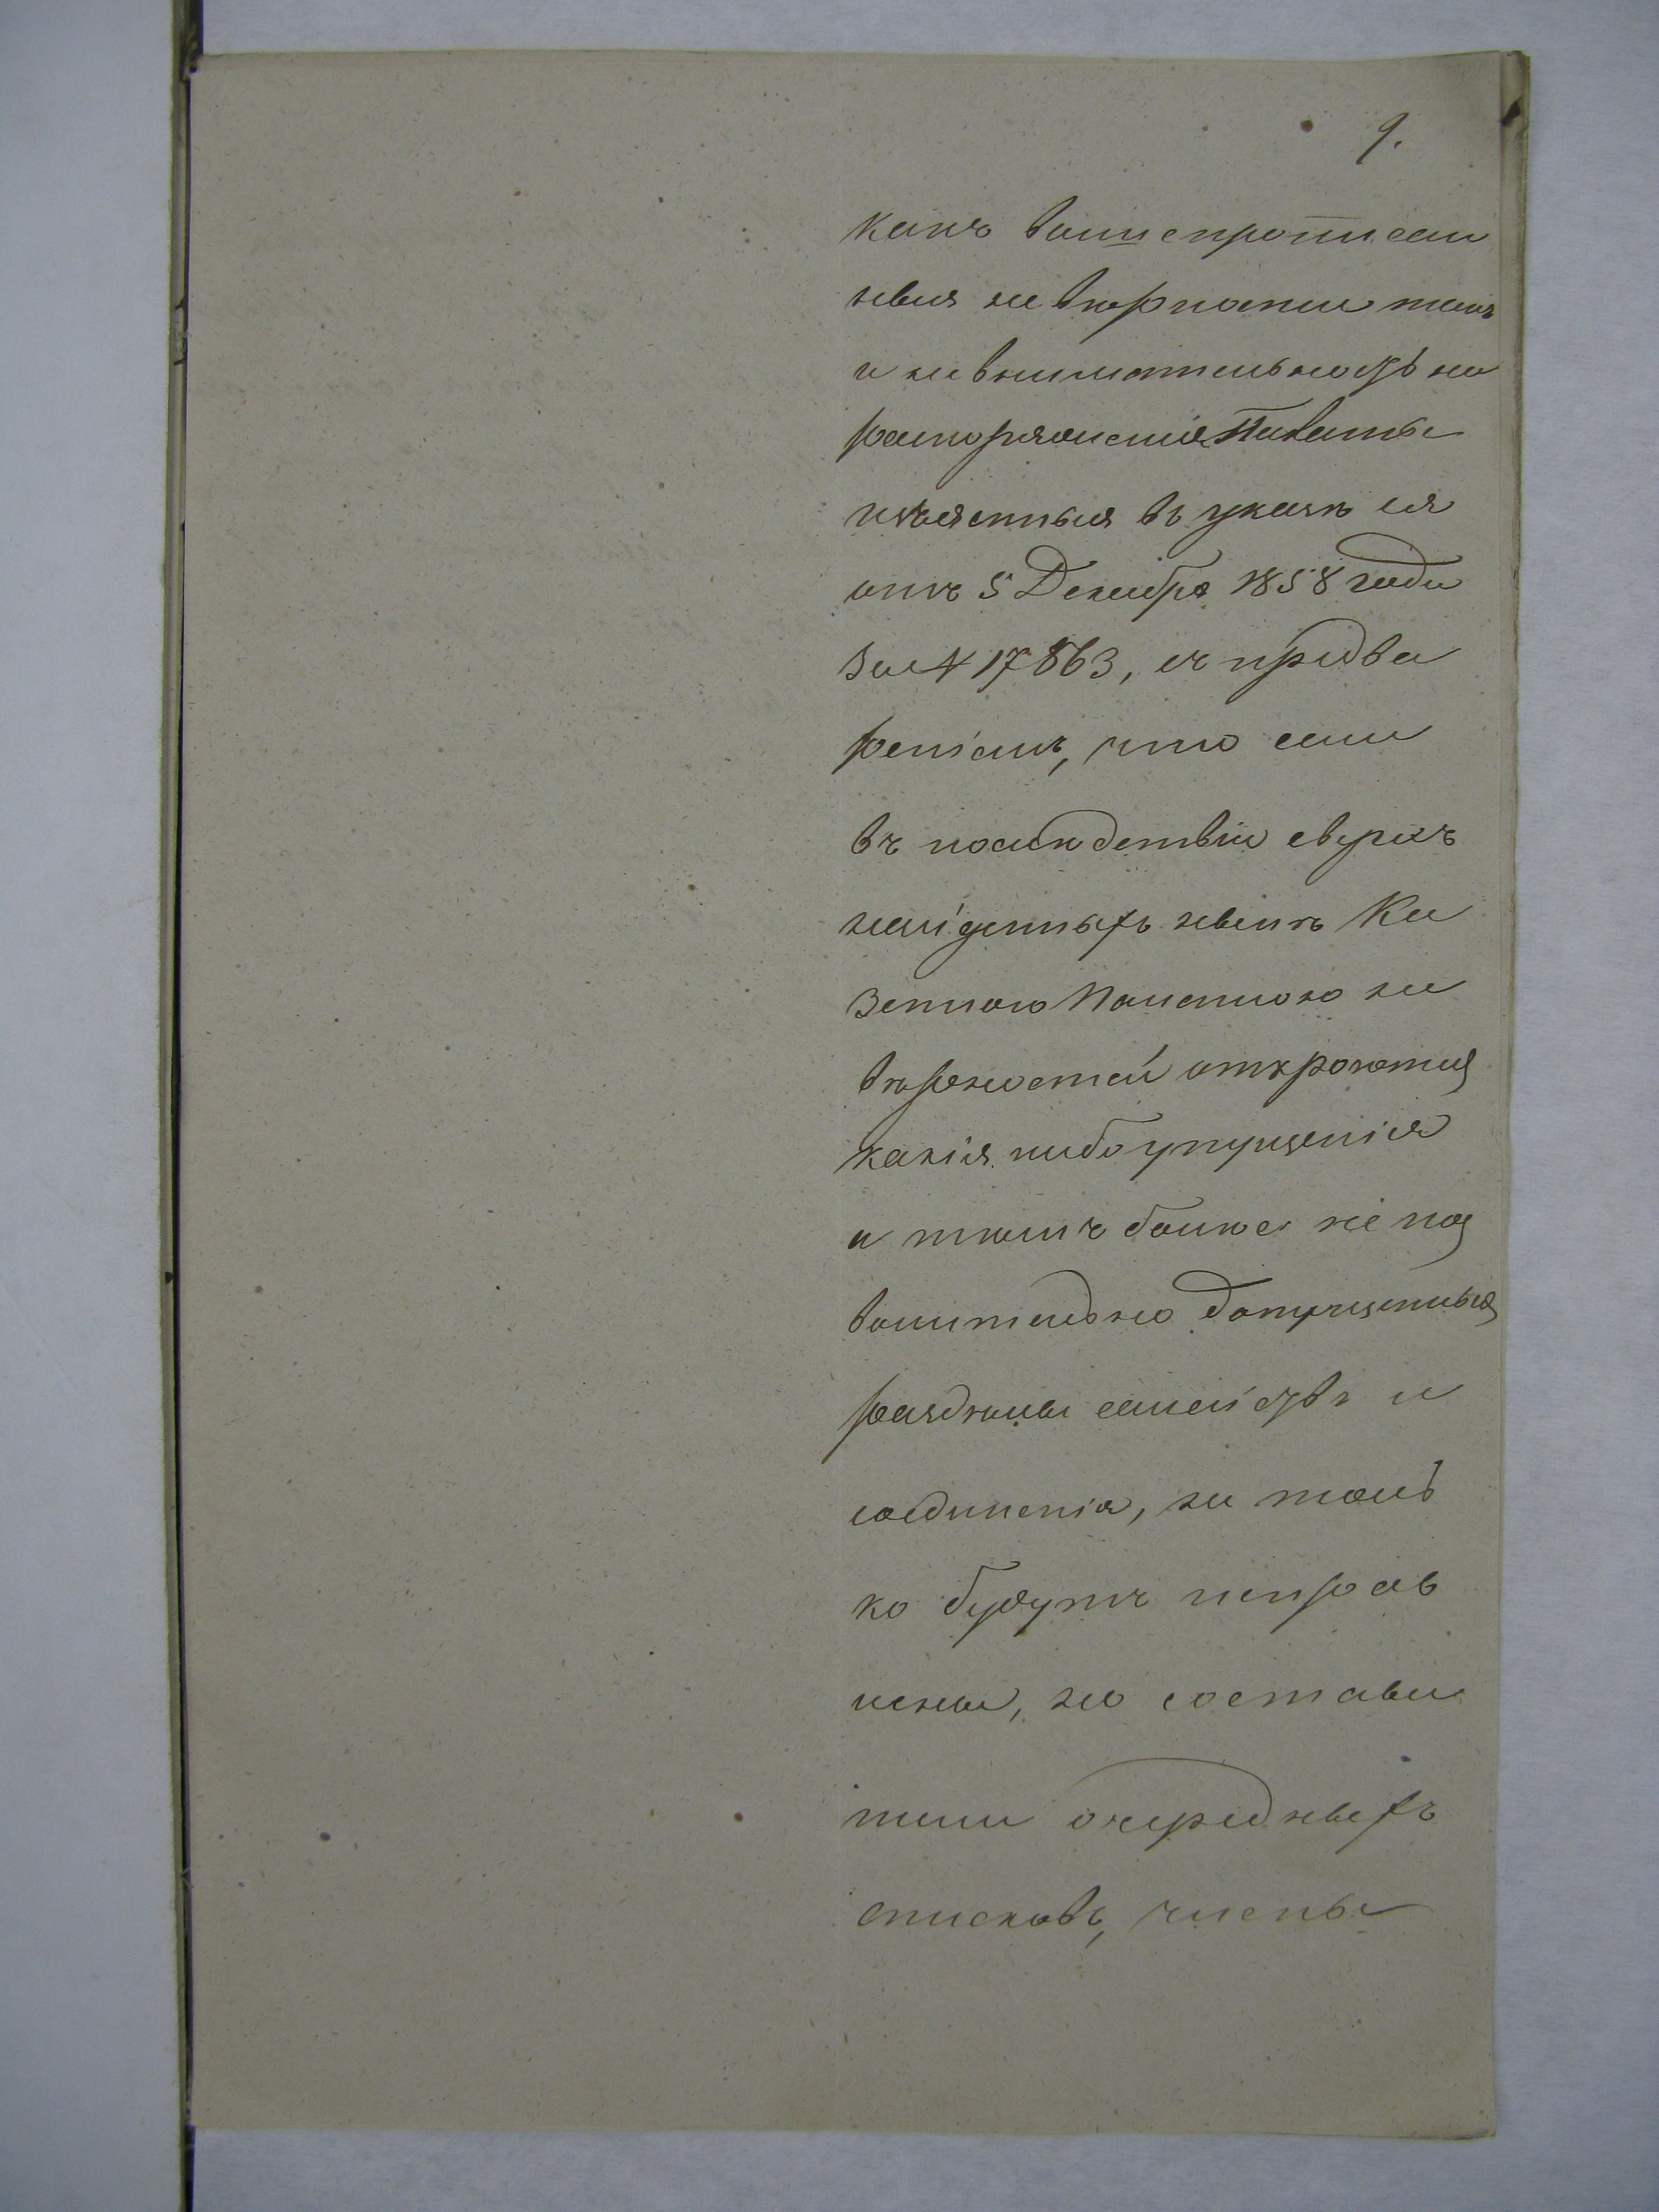 9.
какъ вышепрописан
ныя не вѣрности такъ
и не внимательность на
распоряжения Палаты
изъясненныя въ указѣ ея
отъ 5 Декабря 1858 года
за № 17863, съ предва
реніемъ, что если
въ послѣдствіи сверхъ
найденныхъ нынѣ Ка
зенною Палатою не
вѣрностей откроются
какія либо упущенія
и тѣмъ болѣе не поз
волительно допущенныя
раздѣлы семействъ и
соединенія, не толь
ко будутъ исправ
лены, но состави
тели очередныхъ
списковъ, члены